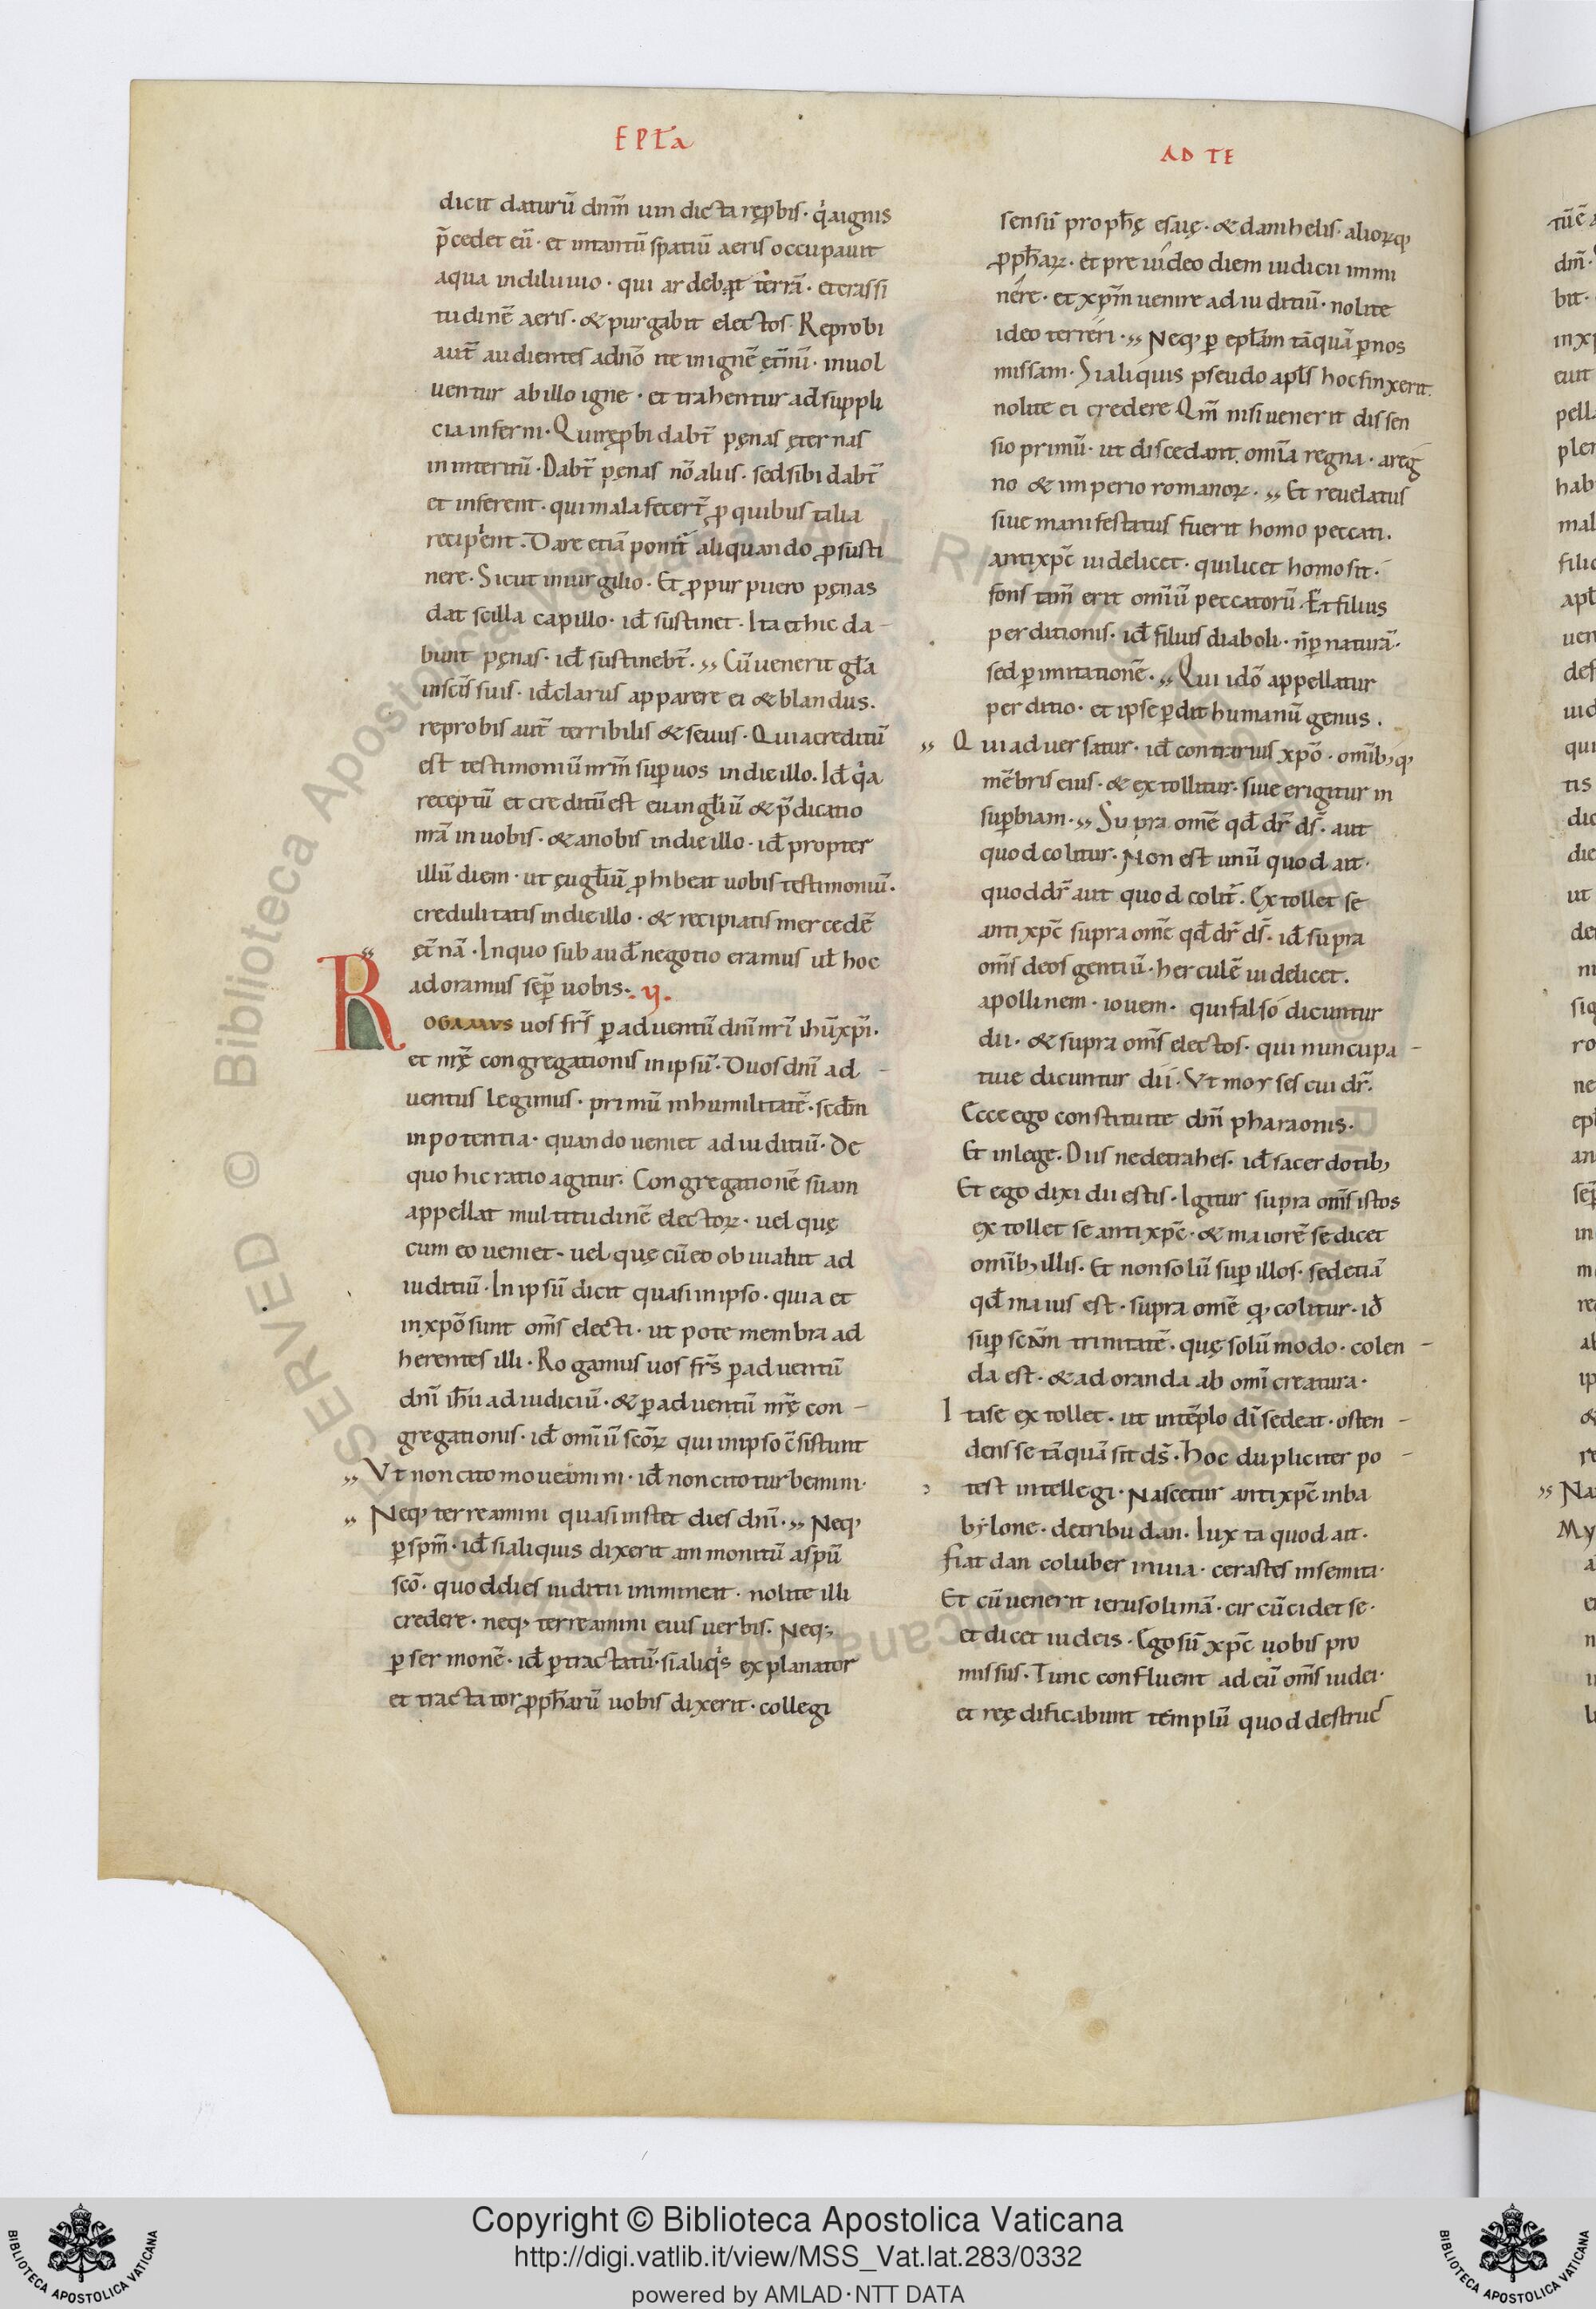 EPĿa
dicit daturū dnm̄ uindicta rep̱bis· q̇aignis
p̄cedet eū· et intantū spatiū aeris occupauit
aqua indiluuio· qui ardebat terrā· etcrassi
tudinē aeris· & purgabit electos· Reprobi
aut̄ audientes adnō ite inignē ęt̄nū· inuol
uentur abillo igne· et trahentur ad suppli
cia inferni· Qui rep̱bi dabt̄ pęnas ęternas
in interitū· Dabt̄ pęnas nō aliis· sed sibi dabt̄
et inferent· qui mala fecert̄ ꝓ quibus talia
recipient· Dare etiā ponit̄ aliquando ꝓ susti
nere· Sicut inuirgilio· Et ꝓ purpureo pęnas
dat scilla capillo· id̄ sustinet· Ita et hic da-
bunt pęnas· id̄ sustinebt̄· ,, Cū uenerit gl̄a
inscīs suis· id̄ clarus apparere ei & blandus.
reprobis aut̄ terribilis & seuus· Quia creditū
est testimoniū nrm̄ sup uos indie illo. Id̄ q̇a
receptū et creditū est euangl̄iū & p̄dicatio
nrā in uobis· & anobis indie illo· id̄ propter
illū diem· ut ęugl̄iū ꝓhibeat uobis testimoniū.
credulitatis indie illo· & recipiatis mercedē
ęt̄nā· Inquo subaud̄ negotio eramus ut hoc
adoramus sep̄ uobis·. ij.
ROGAMUS uos frs̄ ꝑ aduentū dnī nrī ihū xp̄i·
et nrę̄ congregationis inipsū· Duos dnī ad-
uentus legimus· primū inhumilitatē· scd̄m
inpotentia· quando ueniet ad iuditiū· De
quo hic ratio agitur· Congregationē suam
appellat multitudinē electoꝝ· uel quę
cum eo ueniet· uel quę cū eo obuiabit ad
iuditiū· In ipsū dicit quasi inipso· quia et
inxpō sunt oms̄ electi· ut pote membra ad
herentes illi· Rogamus uos frs̄ ꝑ aduentū
dnī ihū ad iudiciū· & ꝑ aduentū nrę̄ con-
gregationis· id̄ omīū scōꝝ qui inipso c̄sistunt
,, Vt non cito moueamini· id̄ non cito turbemini·
,, Neq, terreamini quasi instet dies dnī·,, Neq,
ꝑ spm̄· id̄ si aliquis dixerit ammonitū aspū
scō· quod dies iuditii imminet· nolite illi
credere· neq, terreamini eius uerbis· Neq;
ꝑ sermonē· id̄ ꝑ tractatū· si aliq̇s explanator
et tractator ꝓph̄arū uobis dixerit· collegi
AD TE
sensū proph̄ę esaię· & danihelis· alioꝝq,
ꝓph̄aꝝ· et pre uideo diem iudicii immi
nere· et xpm̄ uenire ad iuditiū· nolite
ideo terreri·,, Neq, ꝑ epl̄am tāquā ꝑ nos
missam· Si aliquis pseudo apl̄s hoc finxerit.
nolite ei credere Qm̄ nisi uenerit dissen
sio primū· ut discedant omīa regna· areg
no & imperio romanoꝝ·,, Et reuelatus
siue manifestatus fuerit homo peccati.
antixpc̄ uidelicet· qui licet homo sit·
fons tam̄ erit omīū peccatorū· Et filius
perditionis· id̄ filius diaboli· n̄ ꝑ naturā·
sed ꝑ imitationē·,, Qui idō appellatur
perditio· et ipse ꝑdit humanū genus.
,, Qui aduersatur· id̄ contrarius xpō· omīb,q,
mēbris eius· & extollitur· siue erigitur in
supbiam·,, Supra omē qd̄ dr̄ ds̄· aut
quod colitur· Non est unū quod ait·
quod dr̄ aut quod colit̄. Extollet se
antixpc̄ supra omē qd̄ dr̄ ds̄· id̄ supra
oms̄ deos gentiū· herculē uidelicet.
apollinem· iouem· qui falso dicuntur
dii· & supra oms̄ electos· qui nuncupa-
tiue dicuntur dii· Vt moyses cui dr̄.
Ecce ego constitui te dm̄ pharaonis·
Et in lege. Diis ne detrahes· id̄ sacerdotib,
Et ego dixi dii estis· Igitur supra oms̄ istos
extollet se antixpc̄· & maiorē se dicet
omīb, illis· Et non solū sup illos· sed etiā
qd̄ maius est· supra omē q, colitur· id̄
sup scām trinitatē· quę solūmodo· colen-
da est· & adoranda ab omī creatura·
Ita se extollet· ut intēplo dī sedeat· osten-
dens se tāquā sit ds̄· hoc dupliciter po-
test intellegi· Nascetur antixpc̄ inba
bylone· detribu dan· Iuxta quod ait·
fiat dan coluber inuia· cerastes insemita·
Et cū uenerit ierusolimā· circūcidet se·
et dicet iudeis· Ego sū xpc̄ uobis pro
missus· Tunc confluent ad eū oms̄ iudei·
et reędificabunt templū quod destruc̄
Copyright © Biblioteca Apostolica Vaticana
http://digi.vatlib.it/view/MSS_Vat.lat.283/0332
powered by AMLAD·NTT DATA
BIBLIOTECA APOSTOLICA VATICANA
BIBLIOTECA APOSTOLICA VATICANA